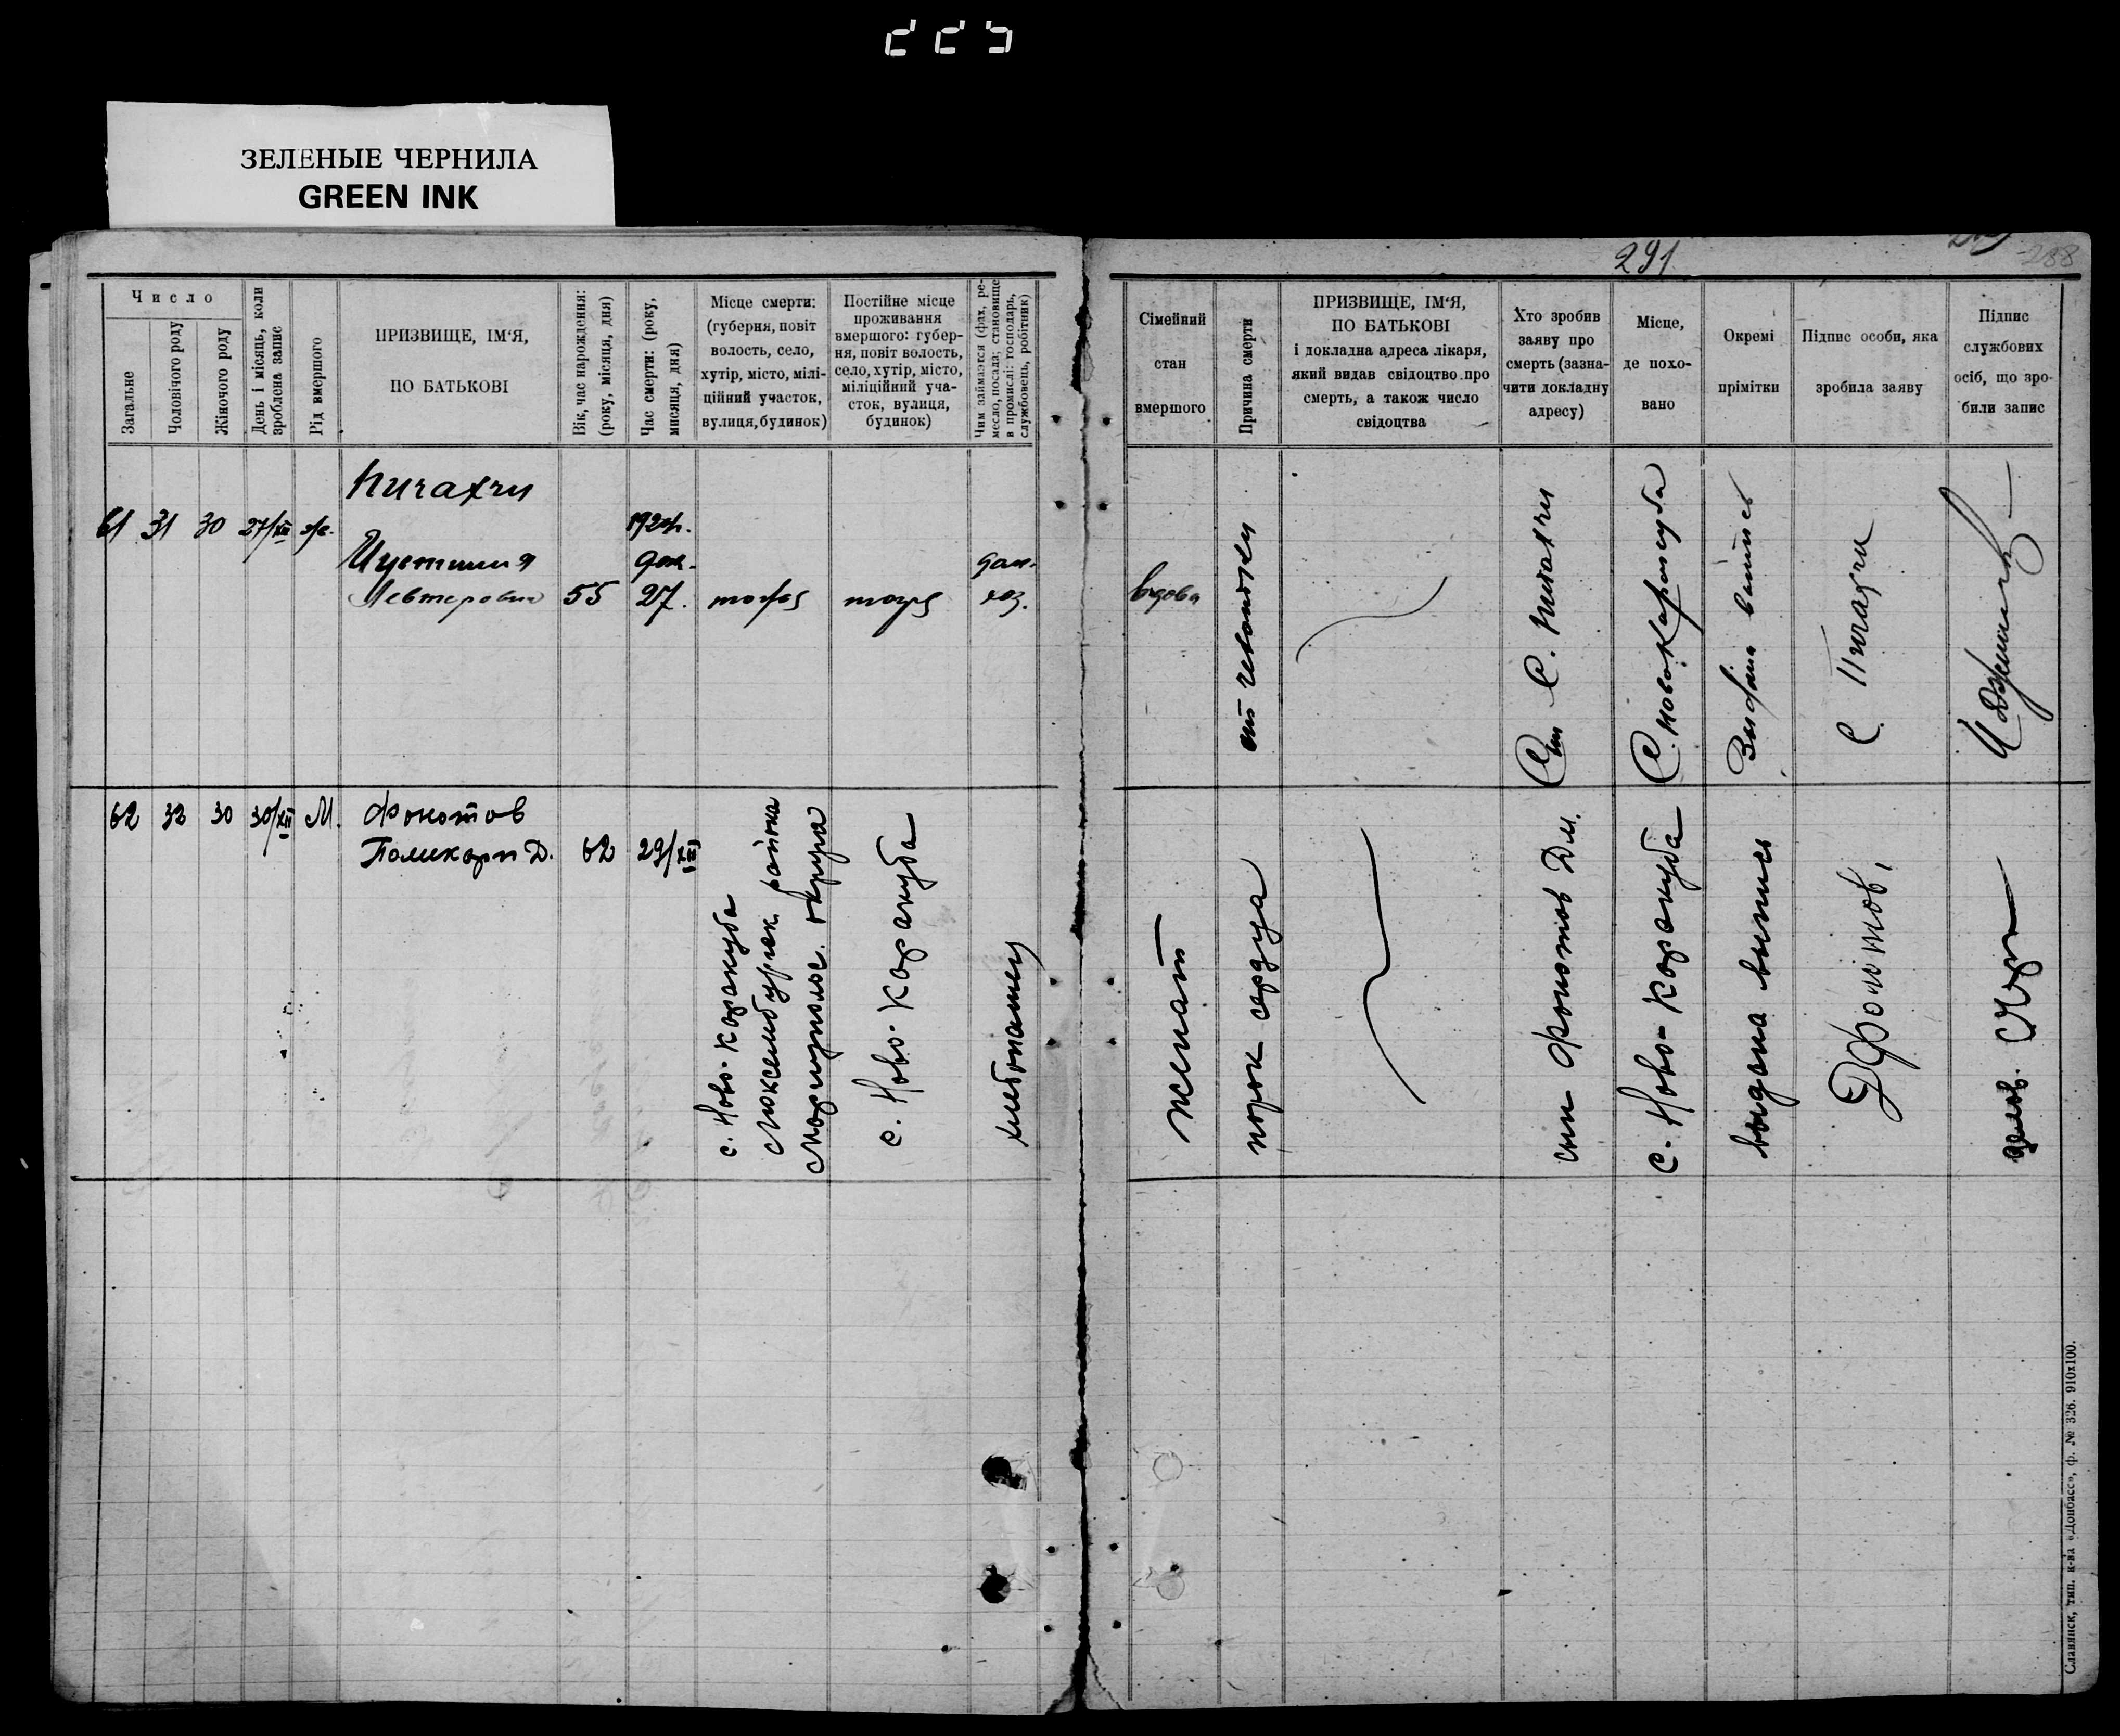 ЗЕЛЕНЫЕ ЧЕРНИЛА
GREEN INK
291
288
Число
Загальне
Чоловічого роду
Жіночого роду
День і місяць, коли
зроблена запис
Рід вмершого
ПРИЗВИЩЕ, ІМ'Я,
ПО БАТЬКОВІ
Вік, час нарождення:
(року, місяця, дня)
Час смерти: (року,
мисяця, дня)
Місце смерти:
(губерня, повіт
волость, село,
хутір, місто, мілі-
ційний участок,
вулиця, будинок)
Постійне місце
проживання
вмершого: губер-
ня, повіт волость,
село, хутір, місто,
міліційний уча-
сток, вулиця,
будинок)
Чим займается (фах, ре-
месло, посада; становище
в промислі: господарь,
службовець, робітник)
Сімейний
стан
вмершого
Причина смерти
ПРИЗВИЩЕ, ІМ'Я,
ПО БАТЬКОВІ
і докладна адреса лікаря,
який видав свідоцтво про
смерть, а також число
свідоцтва
Хто зробив
заяву про
смерть (зазна-
чити докладну
адресу)
Місце,
де похо-
вано
Окремі
прімітки
Підпис особи, яка
зробила заяву
Підпис
службових
осіб, що зро-
били запис
61 31 30 27/XII
Пичахчи
Иустиния
Левтеровна
55
дек.
27.
тоже
тоже
дом.
хоз.
вдова
от чехотки
Сын С. Пичахчи
С. Ново Каракуба
выпись
С. Пичахчи
62 32 30 30/XII М.
Фонотов
Поликарп Д.
62
29/XII
с. Ново-Каракуба
Люксембургск. района
Мариупольс. округа
с. Ново-Каракуба
хлебопашец
женат
порок сердца
сын Фонотов Дм.
с. Ново-Каракуба
выдана выпись
ДФонотов,
Славянск, тип. к-ва «Донбасс», ф. № 326. 910х100.